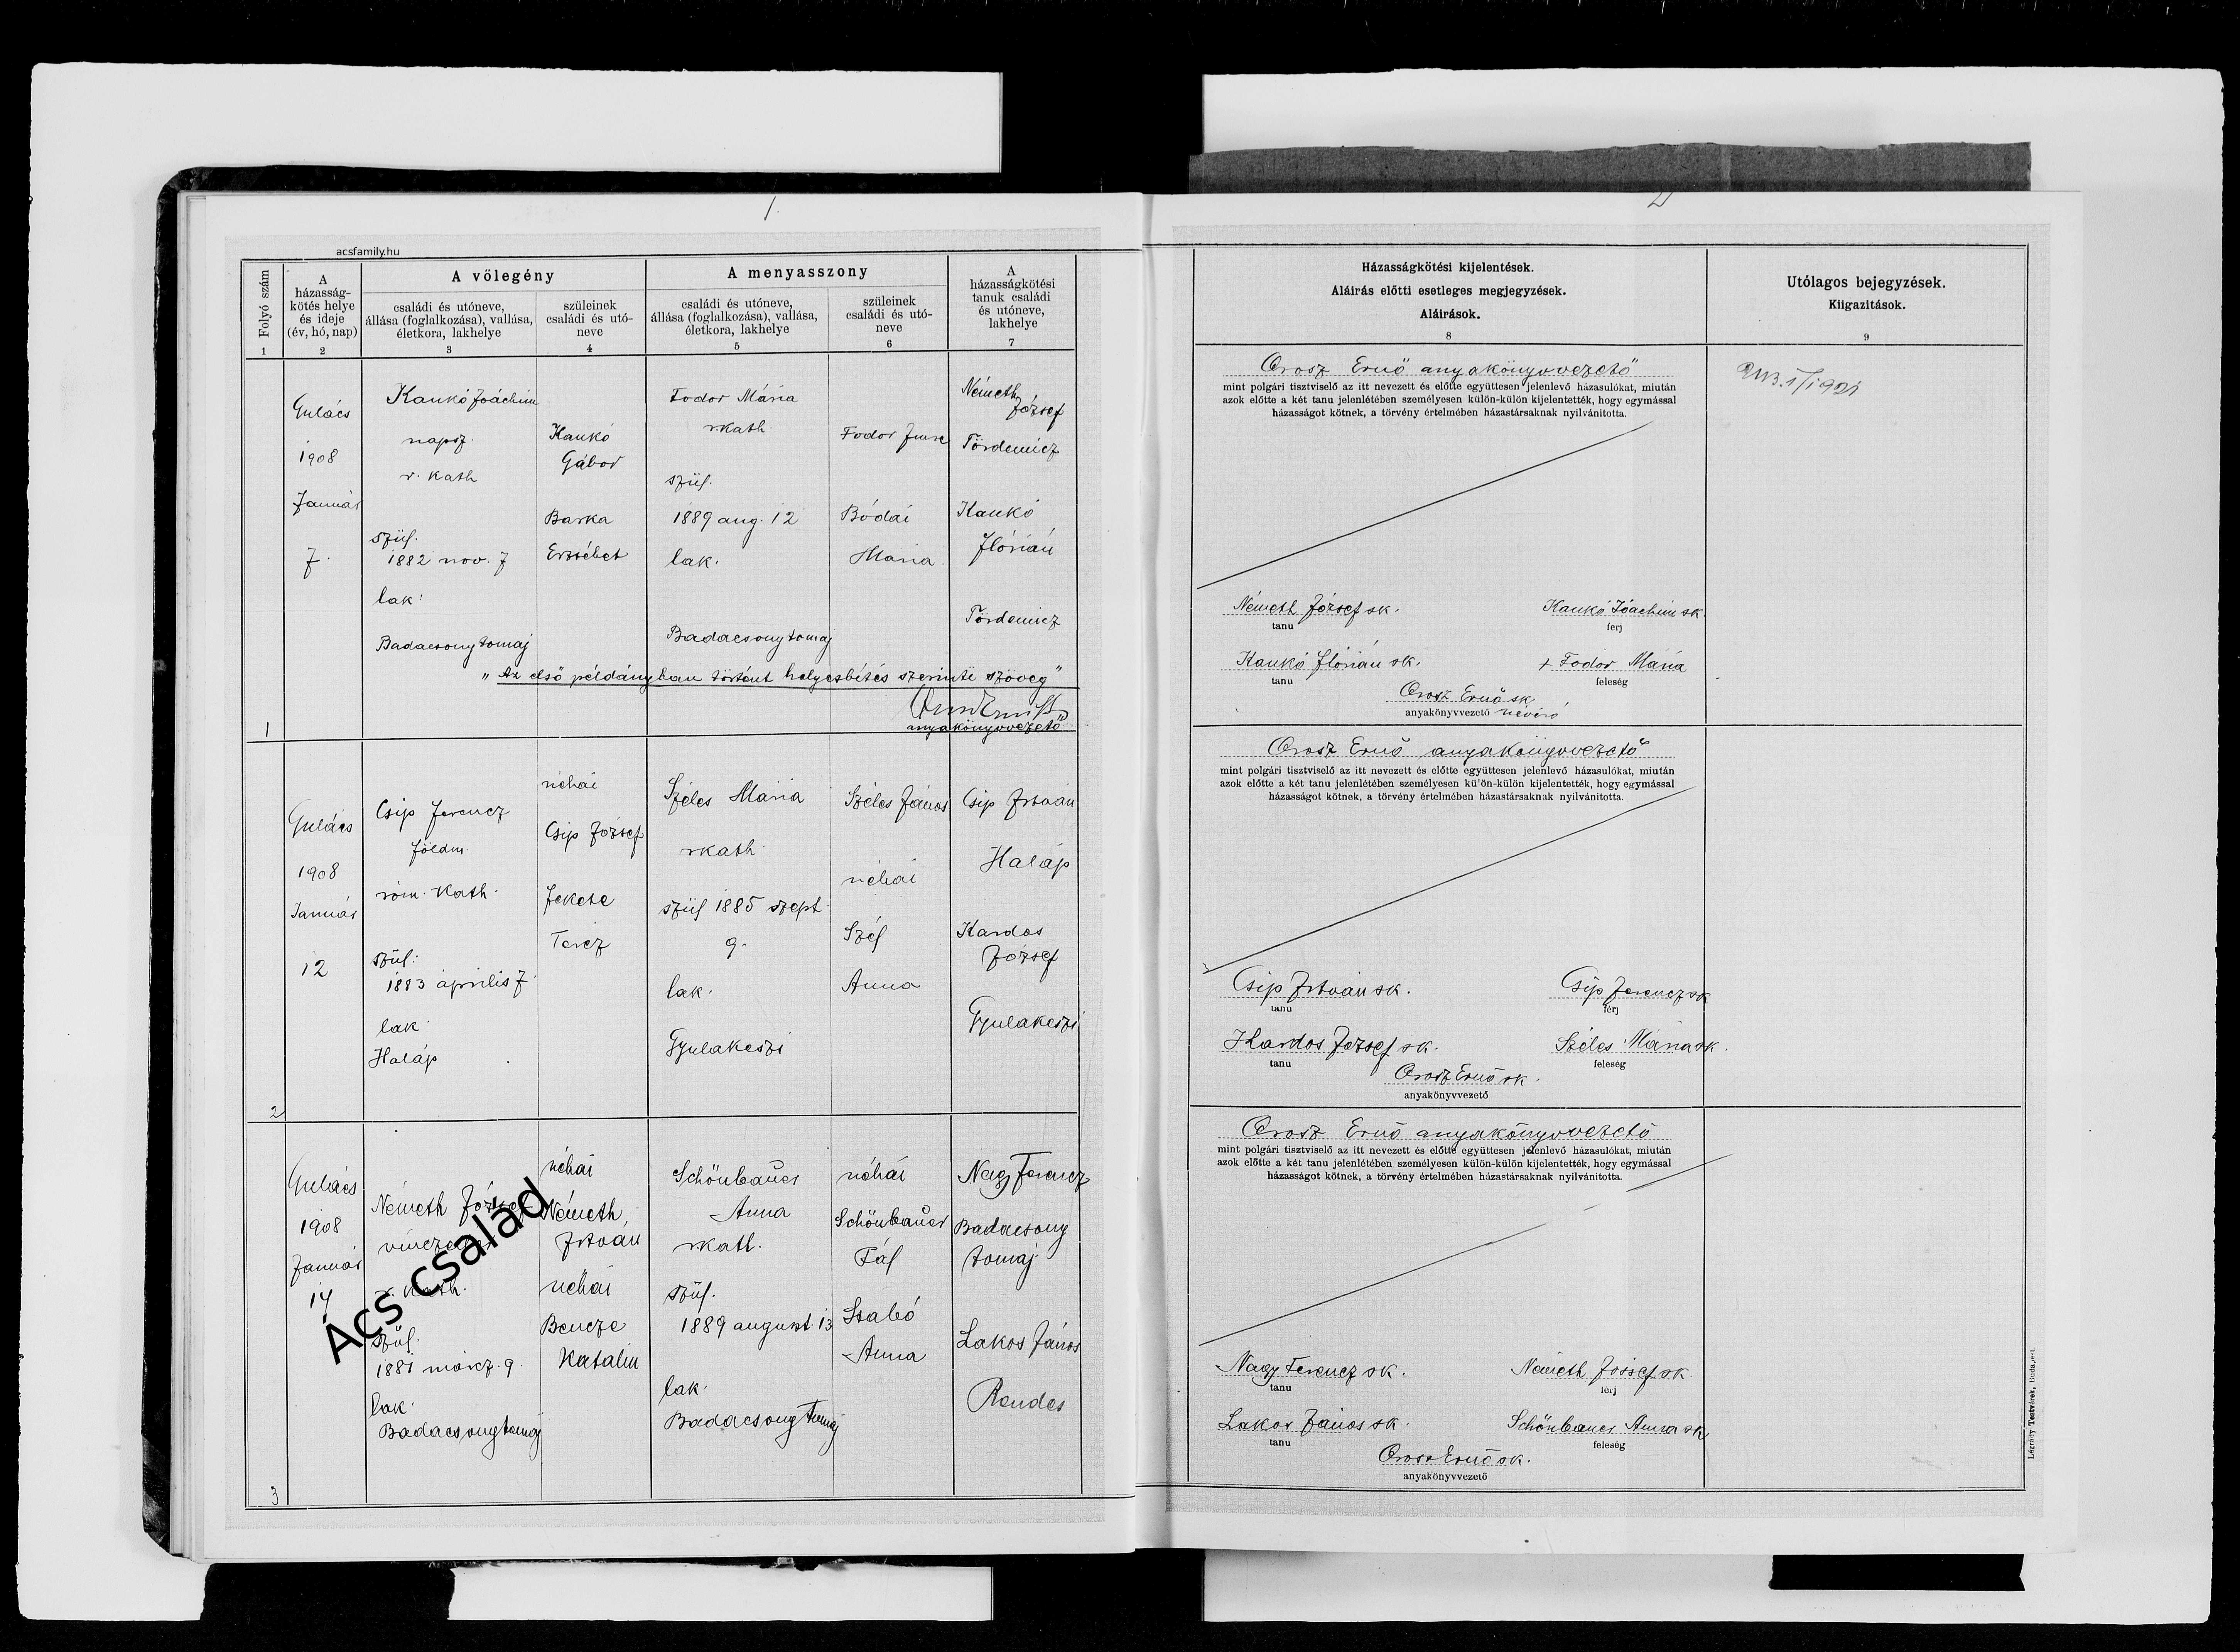 1.
2
acsfamily.hu
Folyó szám
A házasság-
kötés helye
és ideje
(év, hó, nap)
A vőlegény
családi és utóneve,
állása (foglalkozása), vallása,
életkora, lakhelye
szüleinek
családi és utó-
neve
A menyasszony
családi és utóneve,
állása (foglalkozása), vallása,
életkora, lakhelye
szüleinek
családi és utó-
neve
A
házasságkötési
tanuk családi
és utóneve,
lakhelye
1 2 3 4 5 6 7
Gulács
1908
Január
7.
Kaukó Joáchim
napsz.
r. kath
szül.
1882 nov. 7
lak:
Badacsonytomaj
Kaukó
Gábor
Barka
Erzsébet
Fodor Mária
rkath.
szül.
1889 aug. 12
lak.
Badacsonytomaj
Fodor Imre
Bódai
Mária
Németh
József
Tördemicz
Kaukó
Flórián
Tördemicz
„Az első példányban történt helyesbítés szerinti szöveg”
anyakönyvvezető
1
Gulács
1908
Január
12
Csip Ferencz
földm.
róm. kath.
szül:
1883 április 7.
lak
Haláp
néhai
Csip József
Fekete
Teréz
Széles Mária
rkath.
szül 1885 szept
9.
lak.
Gyulakeszi
Széles János
néhai
Szél
Anna
Csip István
Haláp
Kardos
József
Gyulakeszi
2
Gulács
1908
Január
14
Németh József
r. kath.
szül.
1881 márcz. 9.
lak.
Badacsonytomaj
néhai
Németh
István
néhai
Bencze
Katalin
Schönbauer
Anna
rkath.
szül.
1889 august. 13
lak.
Badacsonytomaj
néhai
Schönbauer
Pál
Szabó
Anna
Nagy Ferencz
Badacsony
tomaj
Lakos János
Rendes
3
Ács család
Házasságkötési kijelentések.
Aláírás előtti esetleges megjegyzések.
Aláírások.
8
Utólagos bejegyzések.
Kiigazitások.
9
Orosz Ernő anyakönyvvezető
mint polgári tisztviselő az itt nevezett és előtte együttesen jelenlevő házasulókat, miután
azok előtte a két tanu jelenlétében személyesen külön-külön kijelentették, hogy egymással
házasságot kötnek, a törvény értelmében házastársaknak nyilvánitotta.
Németh József sk.
tanu
Kaukó Joachim sk
ferj
Kaukó Flórián sk.
tanu
+ Fodor Mária
feleség
Orosz Ernő sk
anyakönyvvezető névíró
Orosz Ernő anyakönyvvezető
mint polgári tisztviselő az itt nevezett és előtte együttesen jelenlevő házasulókat, miután
azok előtte a két tanu jelenlétében személyesen külön-külön kijelentették, hogy egymással
házasságot kötnek, a törvény értelmében házastársaknak nyilvánitotta.
Csip István sk.
tanu
Csip Ferencz sk
férj
Kardos József sk.
tanu
Széles Mária sk.
feleség
Orosz Ernő sk.
anyakönyvvezető
Orosz Ernő anyakönyvvezető
mint polgári tisztviselő az itt nevezett és előtte együttesen jelenlevő házasulókat, miután
azok előtte a két tanu jelenlétében személyesen külön-külön kijelentették, hogy egymással
házasságot kötnek, a törvény értelmében házastársaknak nyilvánitotta.
Nagy Ferencz sk.
tanu
Németh József sk
férj
Lakos János sk.
tanu
Schönbauer Anna sk
feleség
Orosz Ernő sk.
anyakönyvvezető
Légrády Testvérek, Budapest.